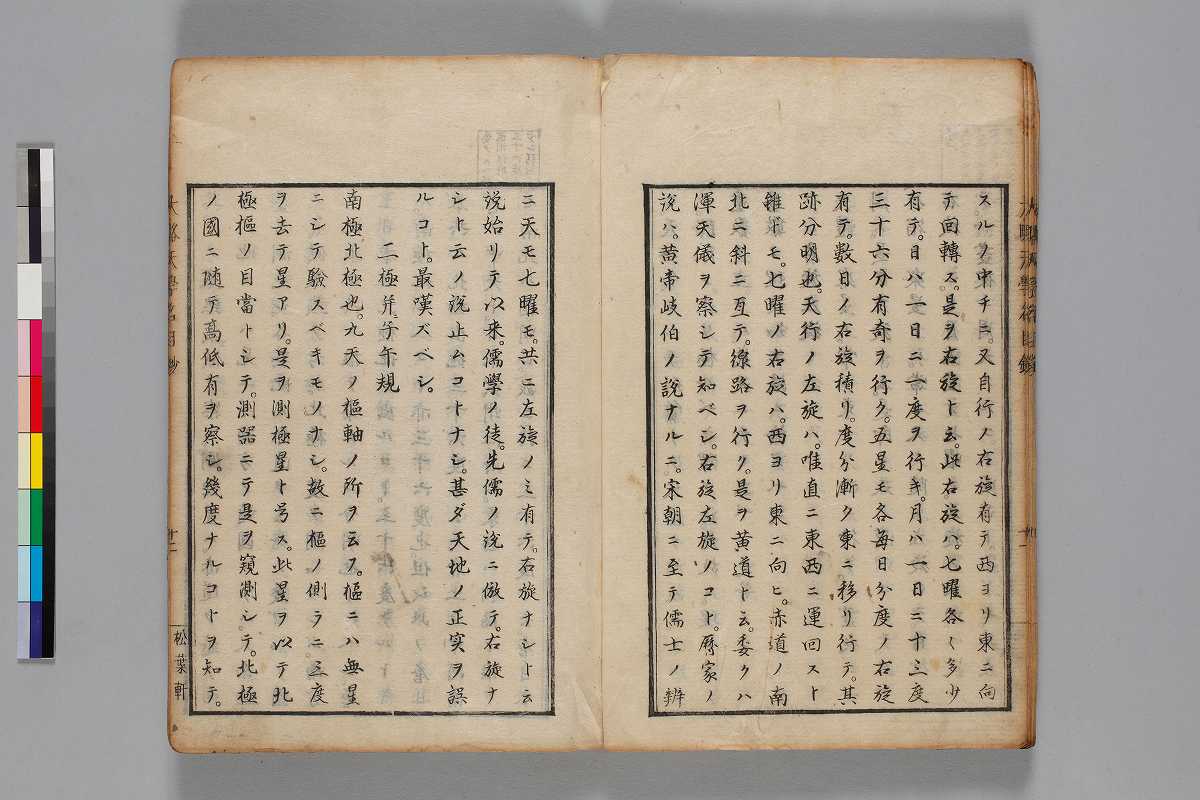 スルヲ中チニ。又自行ノ右旋有テ西ヨリ東ニ向
テ回轉ス。是ヲ右旋ト云。此右旋ハ。七曜各〻多少
有テ。日ハ一日ニ一度ヲ行キ。月ハ一日ニ十三度
三十六分有奇ヲ行ク。五星モ各毎日分度ノ右旋
有テ。數日ノ右旋積リ。度分漸ク東ニ移リ行テ。其
跡分明也。天行ノ左旋ハ。唯直ニ東西ニ運回スト
雖トモ。七曜ノ右旋ハ。西ヨリ東ニ向ヒ。赤道ノ南
北ニ斜ニ互テ。線路ヲ行ク。是ヲ黄道ト云。委クハ
渾天儀ヲ察シテ知ベシ。右旋左旋ノコト。暦家ノ
説ハ。黄帝岐伯ノ說ナルニ。宋朝ニ至テ儒士ノ辨
ニ天モ七曜モ。共ニ左旋ノミ有テ。右旋ナシト云
説始リテ以来。儒學ノ徒。先儒ノ説ニ倣テ。右旋ナ
シト云ノ説止ムコトナシ。甚ダ天地ノ正実ヲ誤
ルコト。最嘆ズベシ。
二極并子午規
南極北極也。九天ノ樞軸ノ所ヲ云フ。樞ニハ無星
ニシテ驗スベキモノナシ。故ニ樞ノ側ラニ三度
ヲ去テ星アリ。是ヲ測極星ト号ス。此星ヲ以テ北
極樞ノ目當トシテ。測器ニテ是ヲ窺測シテ。北極
ノ國ニ随テ高低有ヲ察シ。幾度ナルコトヲ知テ。
松葉軒